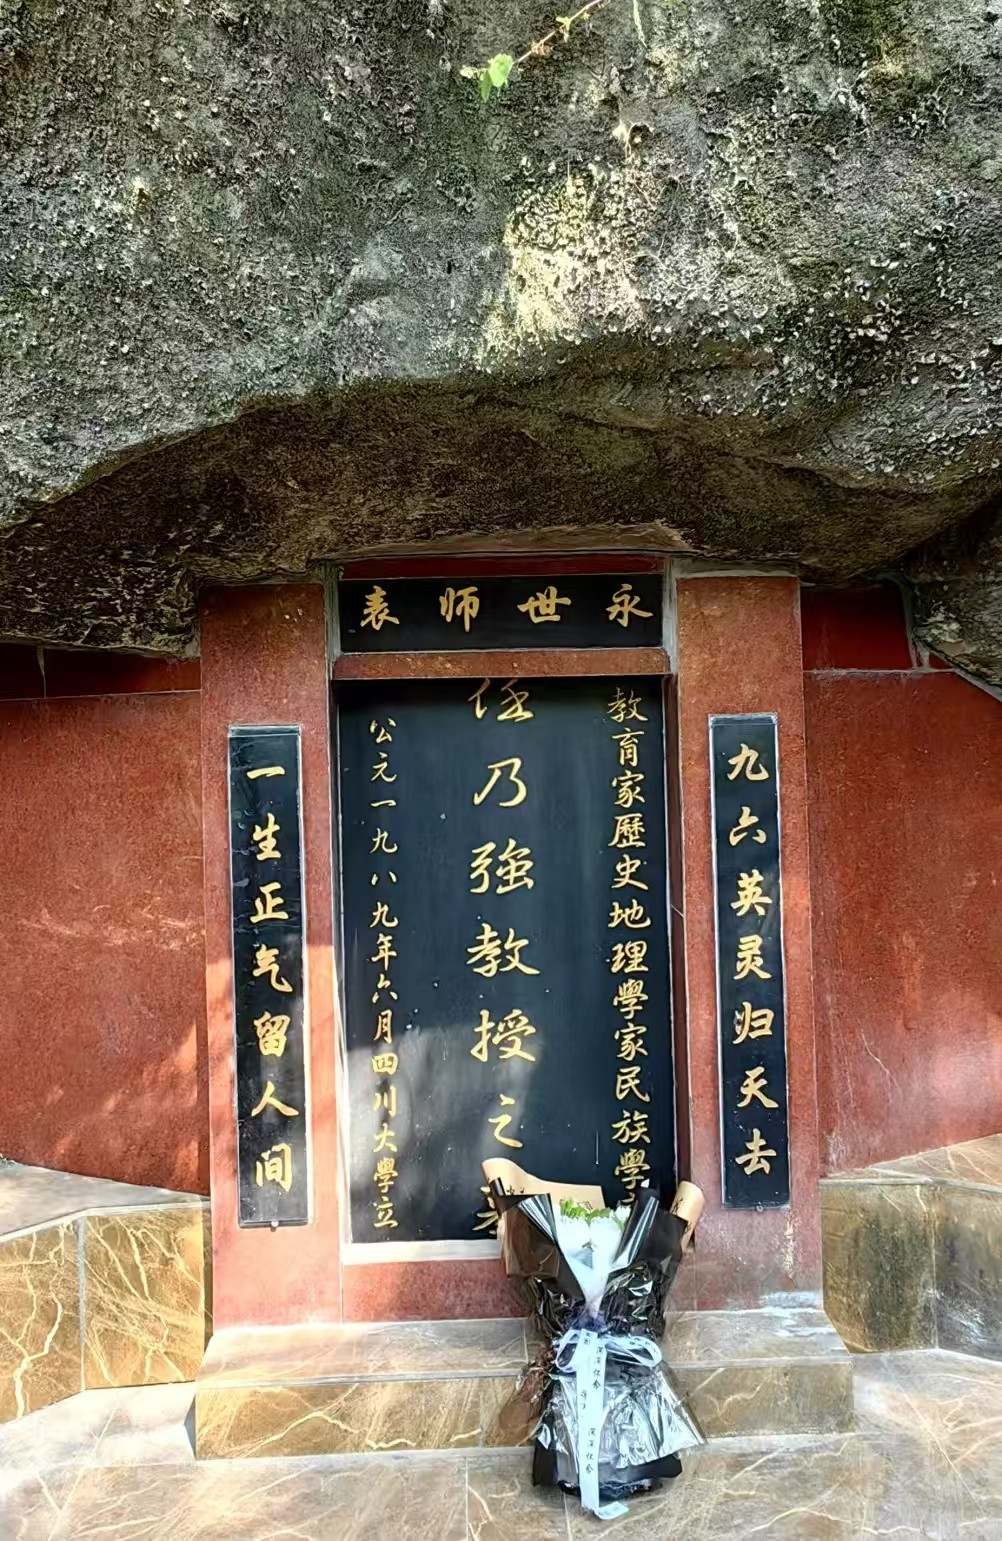 永世师表
九六英灵归天去
教育家歷史地理學家民族學
任乃強教授之
公元一九八九年六月四川大學立
一生正气留人间